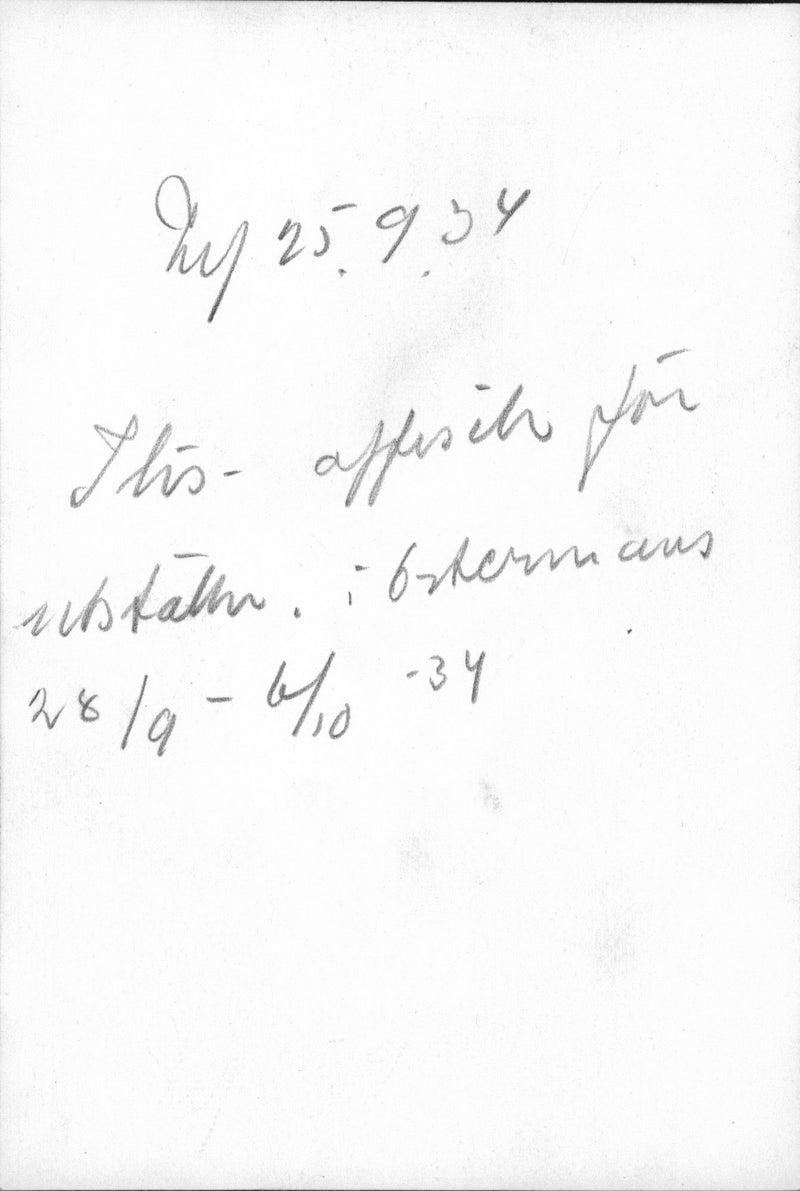 25.9.34
Ilis- affisch för
utställn. i Ostermans
28/9 - 6/10 -34